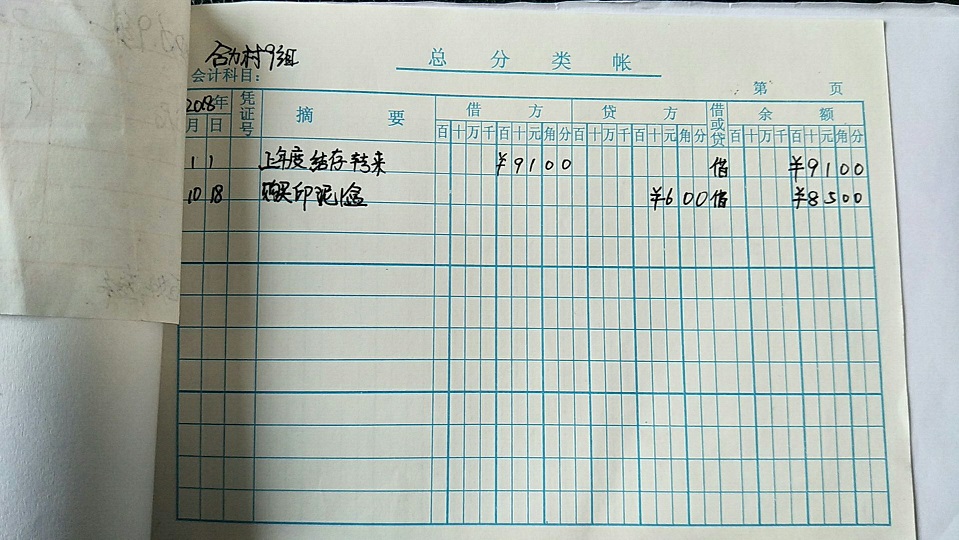 合力村9组
总分类帐
会计科目：
第 页
2018年 凭证号 摘要 借方 贷方 借或贷 余额
月 日 百十万千百十元角分 百十万千百十元角分 百十万千百十元角分
1 1 上年度结存转来 ¥9100 借 ¥9100
10 18 购买印泥1盒 ¥600 借 ¥8500